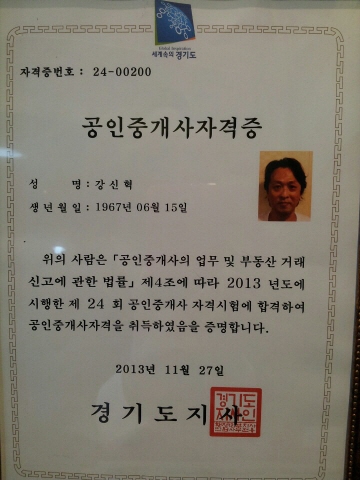 Global Inspiration
세계속의 경기도
자격증번호 : 24-00200
공인중개사자격증
성 명 : 강신혁
생년월일 : 1967년 06월 15일
위의 사람은 「공인중개사의 업무 및 부동산 거래
신고에 관한 법률」 제4조에 따라 2013 년도에
시행한 제 24 회 공인중개사 자격시험에 합격하여
공인중개사자격을 취득하였음을 증명합니다.
2013년 11월 27일
경기도지사